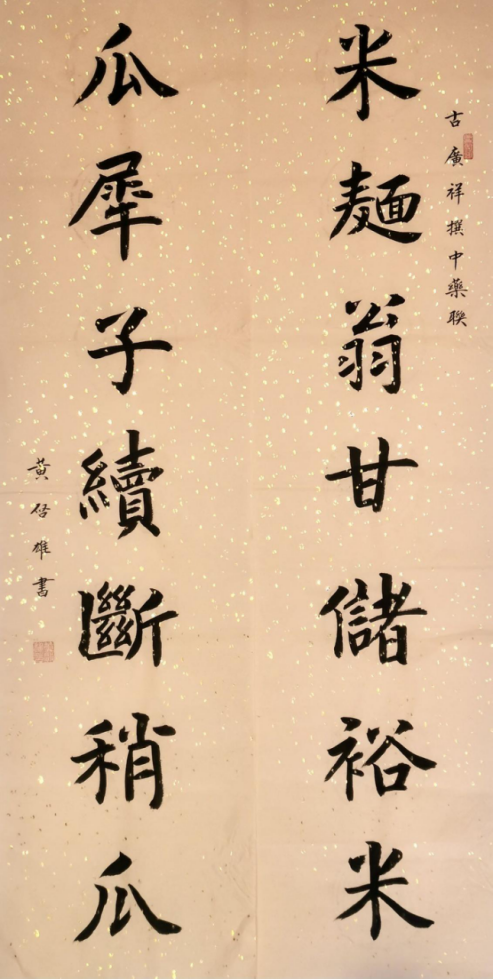 古廣祥撰中藥聯
米麵翁甘儲裕米
瓜犀子續斷稍瓜
黄启雄書